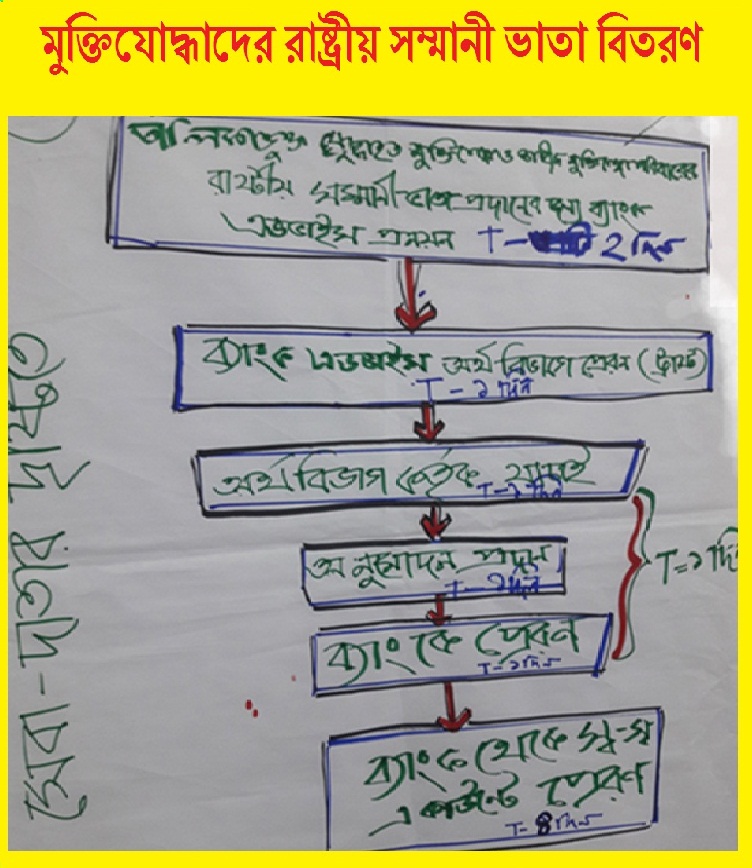 মুক্তিযোদ্ধাদের রাষ্ট্রীয় সম্মানী ভাতা বিতরণ
রাষ্ট্রীয় সম্মানী ভাতা প্রদানের জন্য ব্যাংক
এডভাইস প্রনয়ন T- ২ দিন
ব্যাংক এডভাইস অর্থ বিভাগে প্রেরন
T - ১ দিন
অর্থ বিভাগ কর্তৃক যাচাই
T-১ দিন
অনুমোদন প্রদান
T-১ দিন
ব্যাংকে প্রেরণ
T-১দিন
T=১ দি
ব্যাংক থেকে স্ব-স্ব
একাউন্টে প্রেরণ
T- ৪ দিন
সেবা-দাতার দৃষ্টিতে